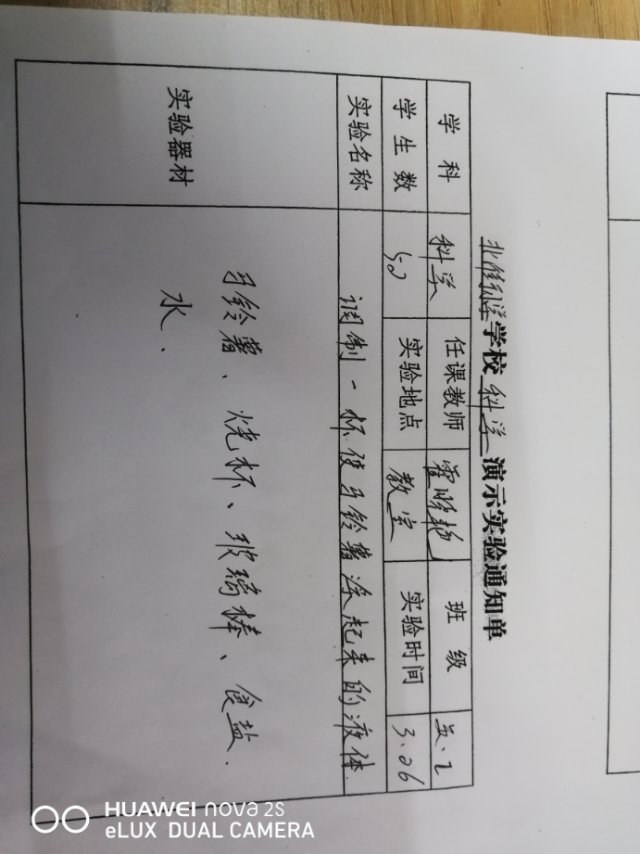 学校 科学 演示实验通知单
学科 科学 任课教师 霍明艳 班级 五.2
学生数 50 实验地点 教室 实验时间 3.26
实验名称 调制一杯使马铃薯浮起来的液体
实验器材 马铃薯、烧杯、玻璃棒、食盐、
水、
HUAWEI nova 2s
eLUX DUAL CAMERA